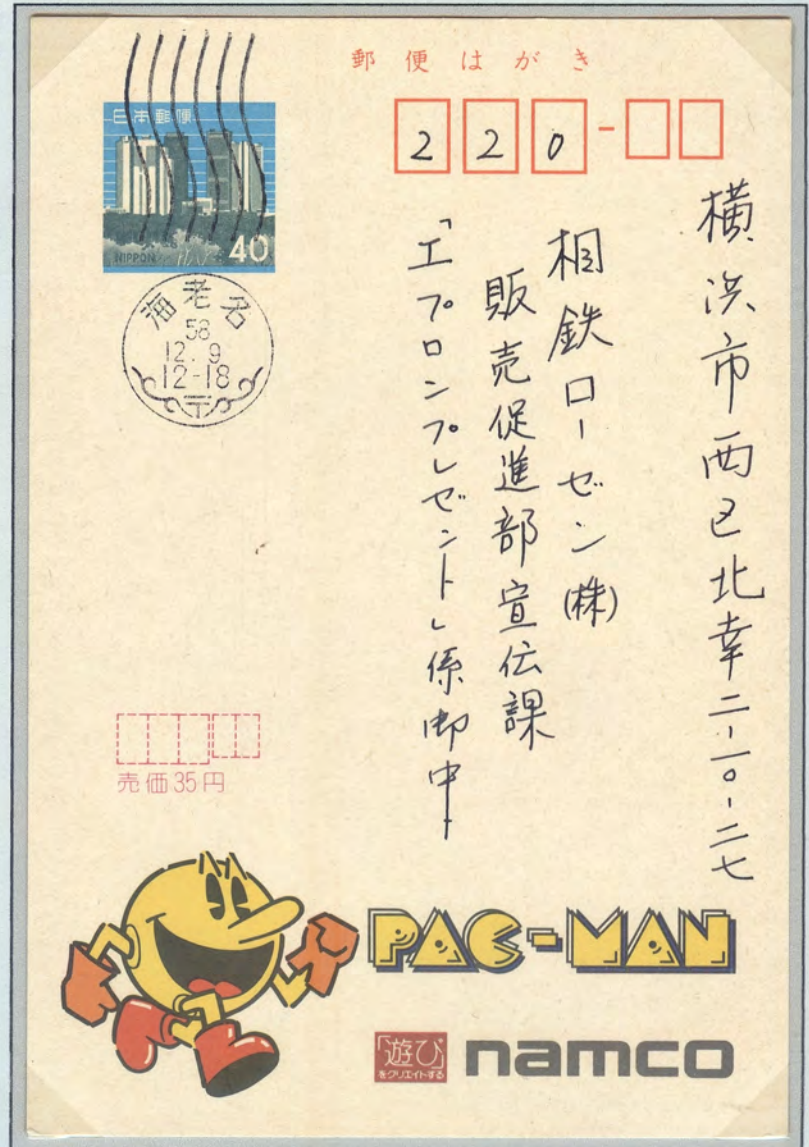 郵便はがき
日本郵便
NIPPON
40
海老名
58
12.9
12-18
〒
220-
横浜市西区北幸二-一〇-二七
相鉄ローゼン(株)
販売促進部宣伝課
「エプロンプレゼント」係御中
売価35円
PAC-MAN
「遊び」
をクリエイトする
namco